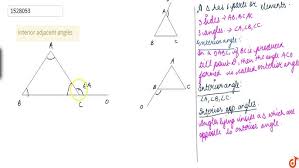 1528053
interior adjacent angles
A
B
C
D
A
B
C
A Δ has 6 parts or elements:
3 sides → AB, BC, AC
3 angles → ∠A, ∠B, ∠C
Exterior angle:
In a ΔABC, if BC is produced
till point D, then the angle ACD
formed is called exterior angle
Interior angle:
∠A, ∠B, ∠C
Interior opp. angles:
Angles lying inside a Δ which are
opposite to exterior angle